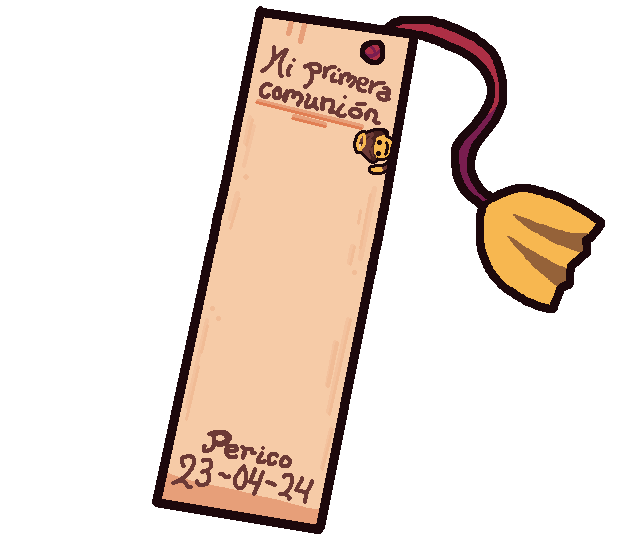 Mi primera
comunión
Perico
23-04-24